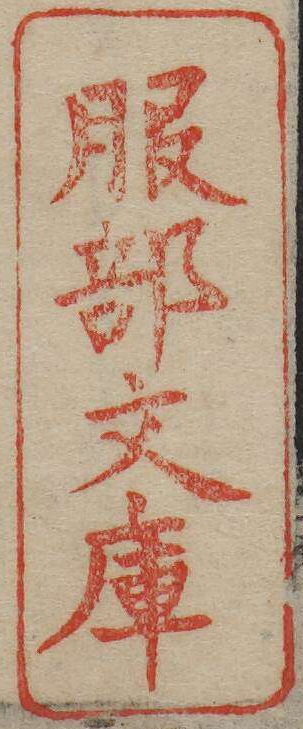 服部文庫